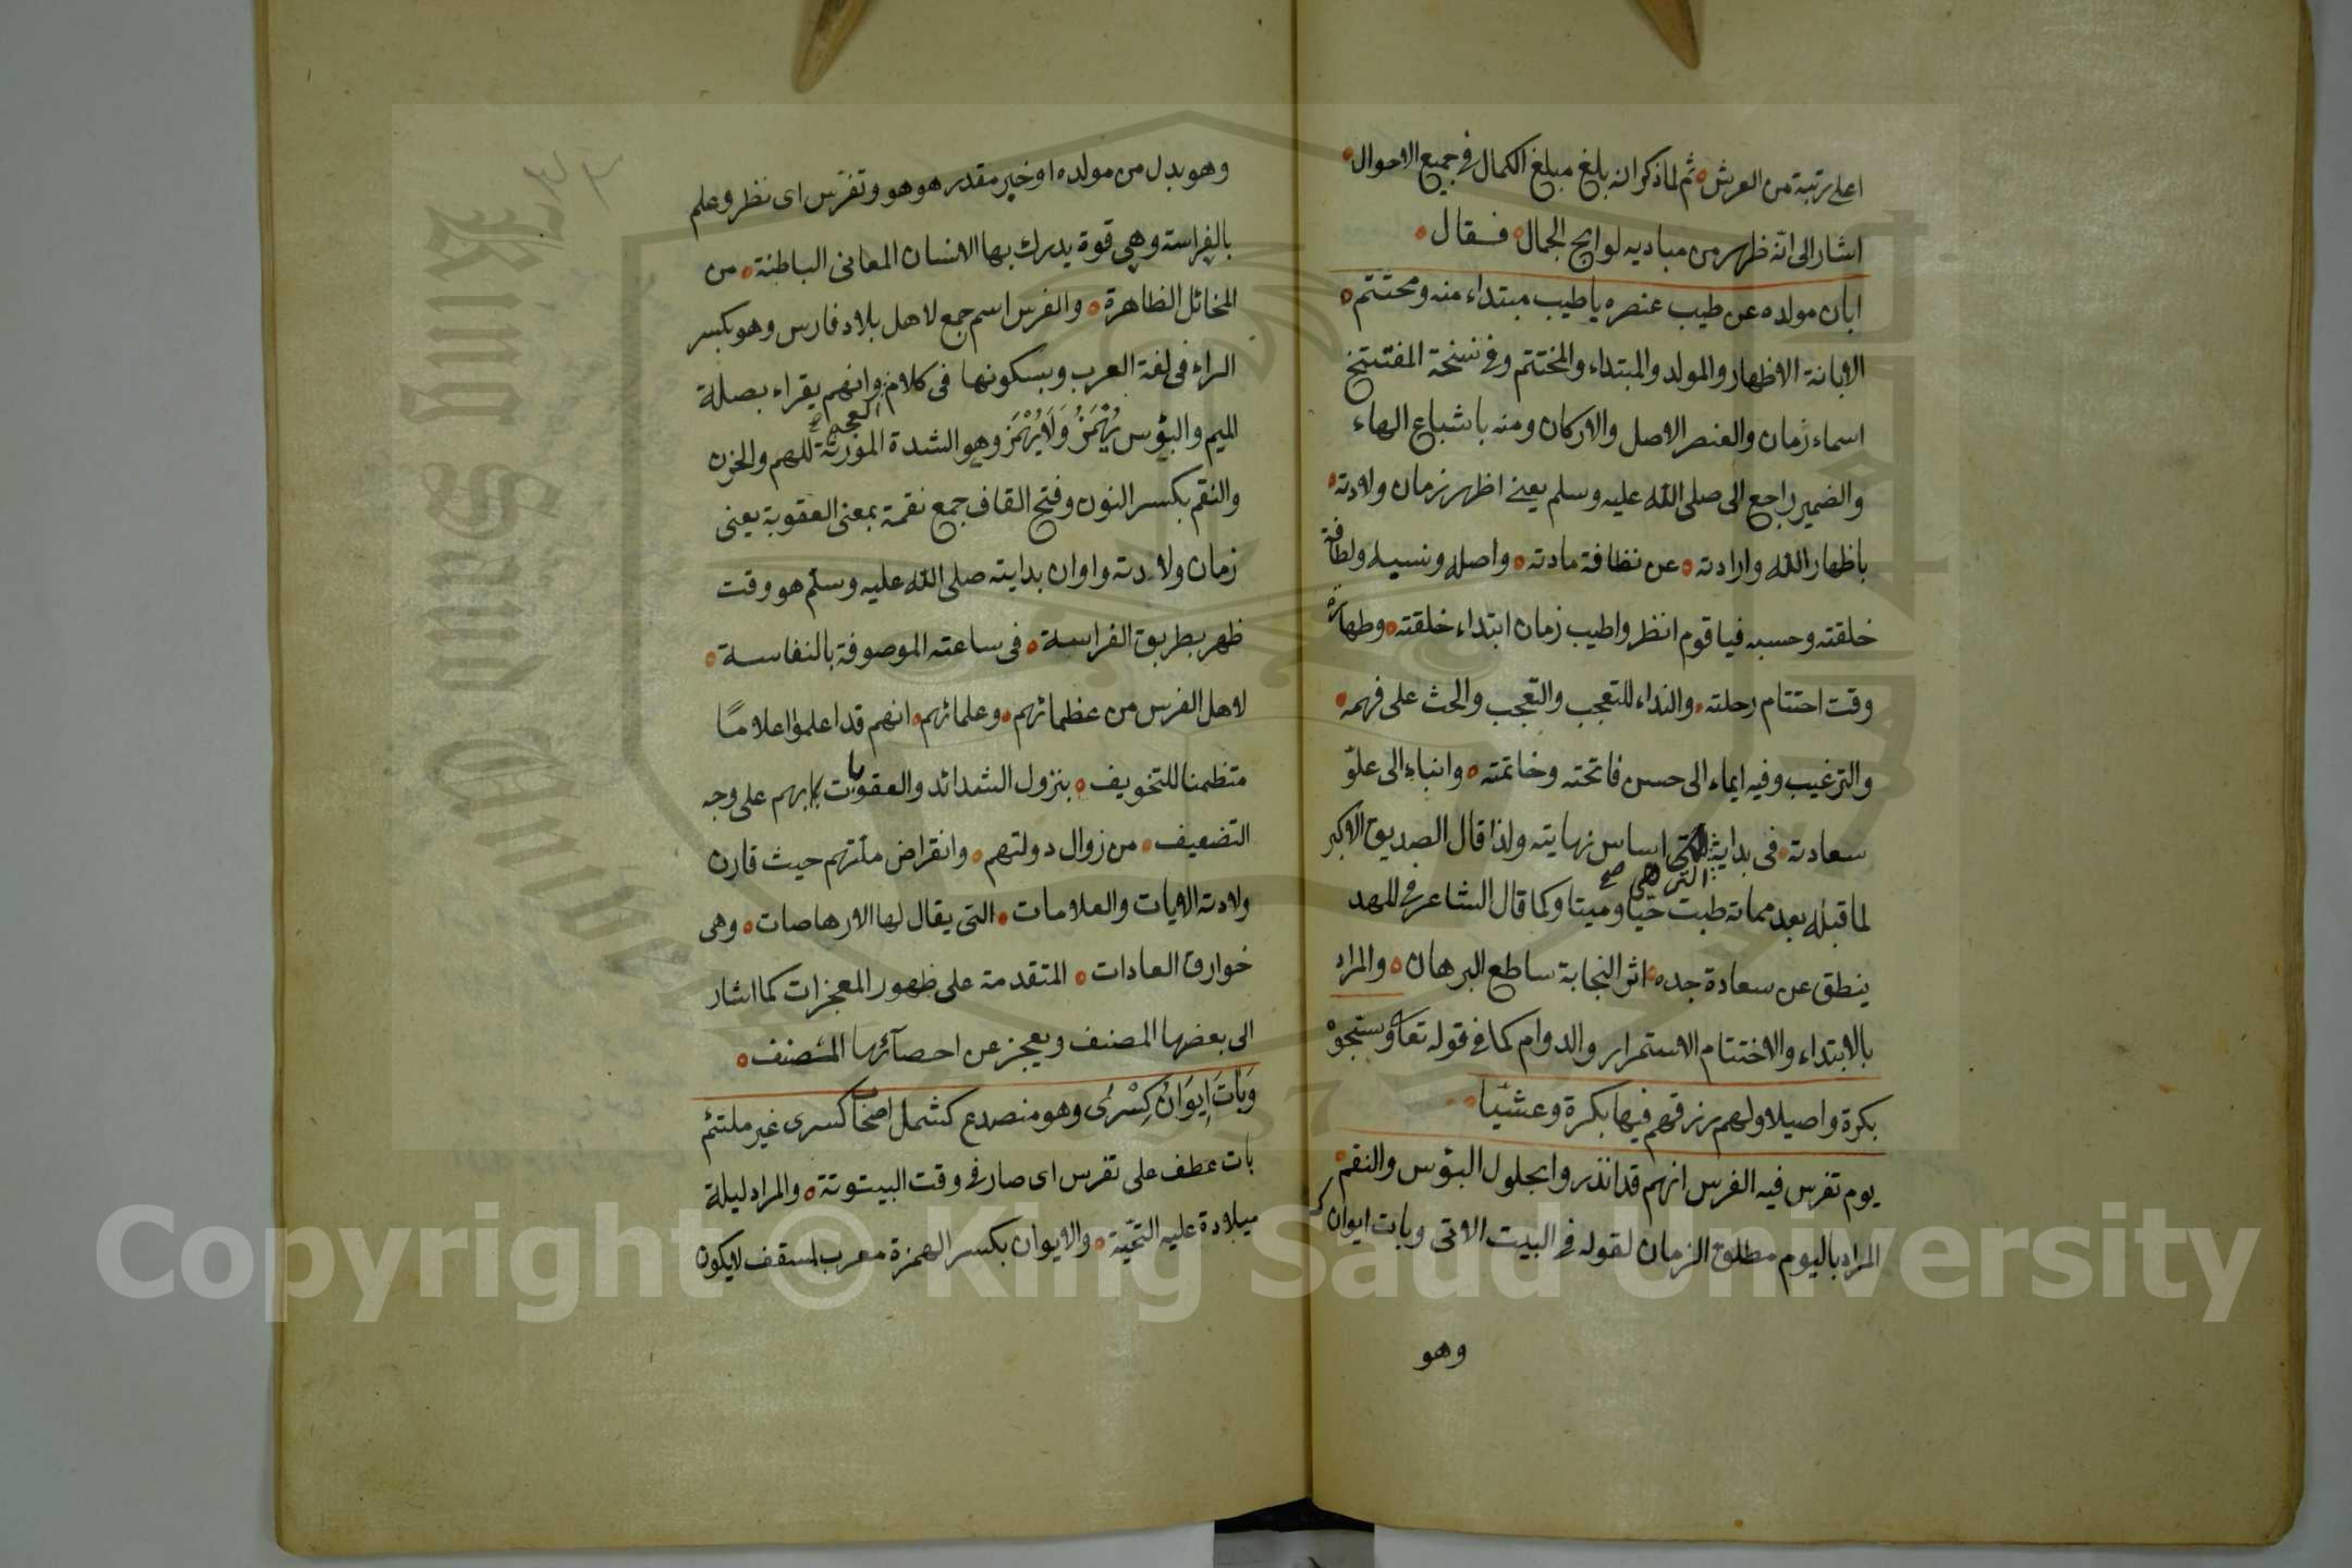 اعلى رتبة من العرش ثم لما ذكر انه بلغ مبلغ الكمال في جميع الاحوال
اشار الى انّه ظهر من مباديه لوايح الجمال فقال
ابان مولده عن طيب عنصره ياطيب مبتداء منه ومختتم
الابانة الاظهار والمولد والمبتداء والمختتم وفي نسخة المفتتح
اسماء زمان والعنصر الاصل والاركان ومنه باشباع الهاء
والضمير راجع الى صلى الله عليه وسلم يعني اظهر زمان ولادته
باظهار الله وارادته عن نظافة مادته واصله ونسبه ولطافة
خلقته وحسبه فيا قوم انظروا طيب زمان ابتداء خلقته وطهارة
وقت اختتام رحلته والنداء للتعجب والتعجب والحث على فهمه
والترغيب وفيه ايماء الى حسن فاتحته وخاتمته وانباء الى علوّ
سعادته في بدايته التي هي صح اساس نهايته ولذا قال الصديق الاكبر
لما قبله بعد مماته طبت حيّا وميتا وكما قال الشاعر في المهد
ينطق عن سعادة جده اثر النجابة ساطع البرهان والمراد
بالابتداء والاختتام الاستمرار والدوام كما في قوله تعا وسبّحوه
بكرة واصيلا ولهم رزقهم فيها بكرة وعشيّا
يوم تفرس فيه الفرس انهم قد انذروا بحلول البؤس والنقم
المراد باليوم مطلق الزمان لقوله في البيت الاتى وبات ايوان
وهو
وهو بدل من مولده او خبر مقدر هو هو وتفرّس اى نظر وعلم
بالفراسة وهي قوة يدرك بها الانسان المعانى الباطنة من
المخائل الظاهرة والفرس اسم جمع لاهل بلاد فارس وهو بكسر
الراء فى لغة العرب وبسكونها فى كلام العجم صح وانهم يقراء بصلة
الميم والبؤس يُهْمَزُ وَلَا يُهْمَزُ وهو الشدة المورثة للهم والحزن
والنقم بكسر النون وفتح القاف جمع نقمة بمعنى العقوبة يعنى
زمان ولادته واوان بدايته صلى الله عليه وسلّم هو وقت
ظهر بطريق الفراسة فى ساعته الموصوفة بالنفاسة
لاهل الفرس من عظمائهم وعلمائهم انهم قد اعلموا اعلامًا
متظمنا للتخويف بنزول الشدائد والعقوبات بهم على وجه
التضعيف من زوال دولتهم وانقراض ملّتهم حيث قارن
ولادته الايات والعلامات التى يقال لها الارهاصات وهى
خوارق العادات المتقدمة على ظهور المعجزات كما اشار
الى بعضها المصنف ويعجز عن احصآئها المصنف
وَبَاتَ اِيوَانُ كِسْرٰى وهو منصدع كشمل اصحاب كسرى غير ملتئم
بات عطف على تفرس اى صار فى وقت البيتوتة والمراد ليلة
ميلادة عليه التحيّة والايوان بكسر الهمزة معرب لسقف لايكون